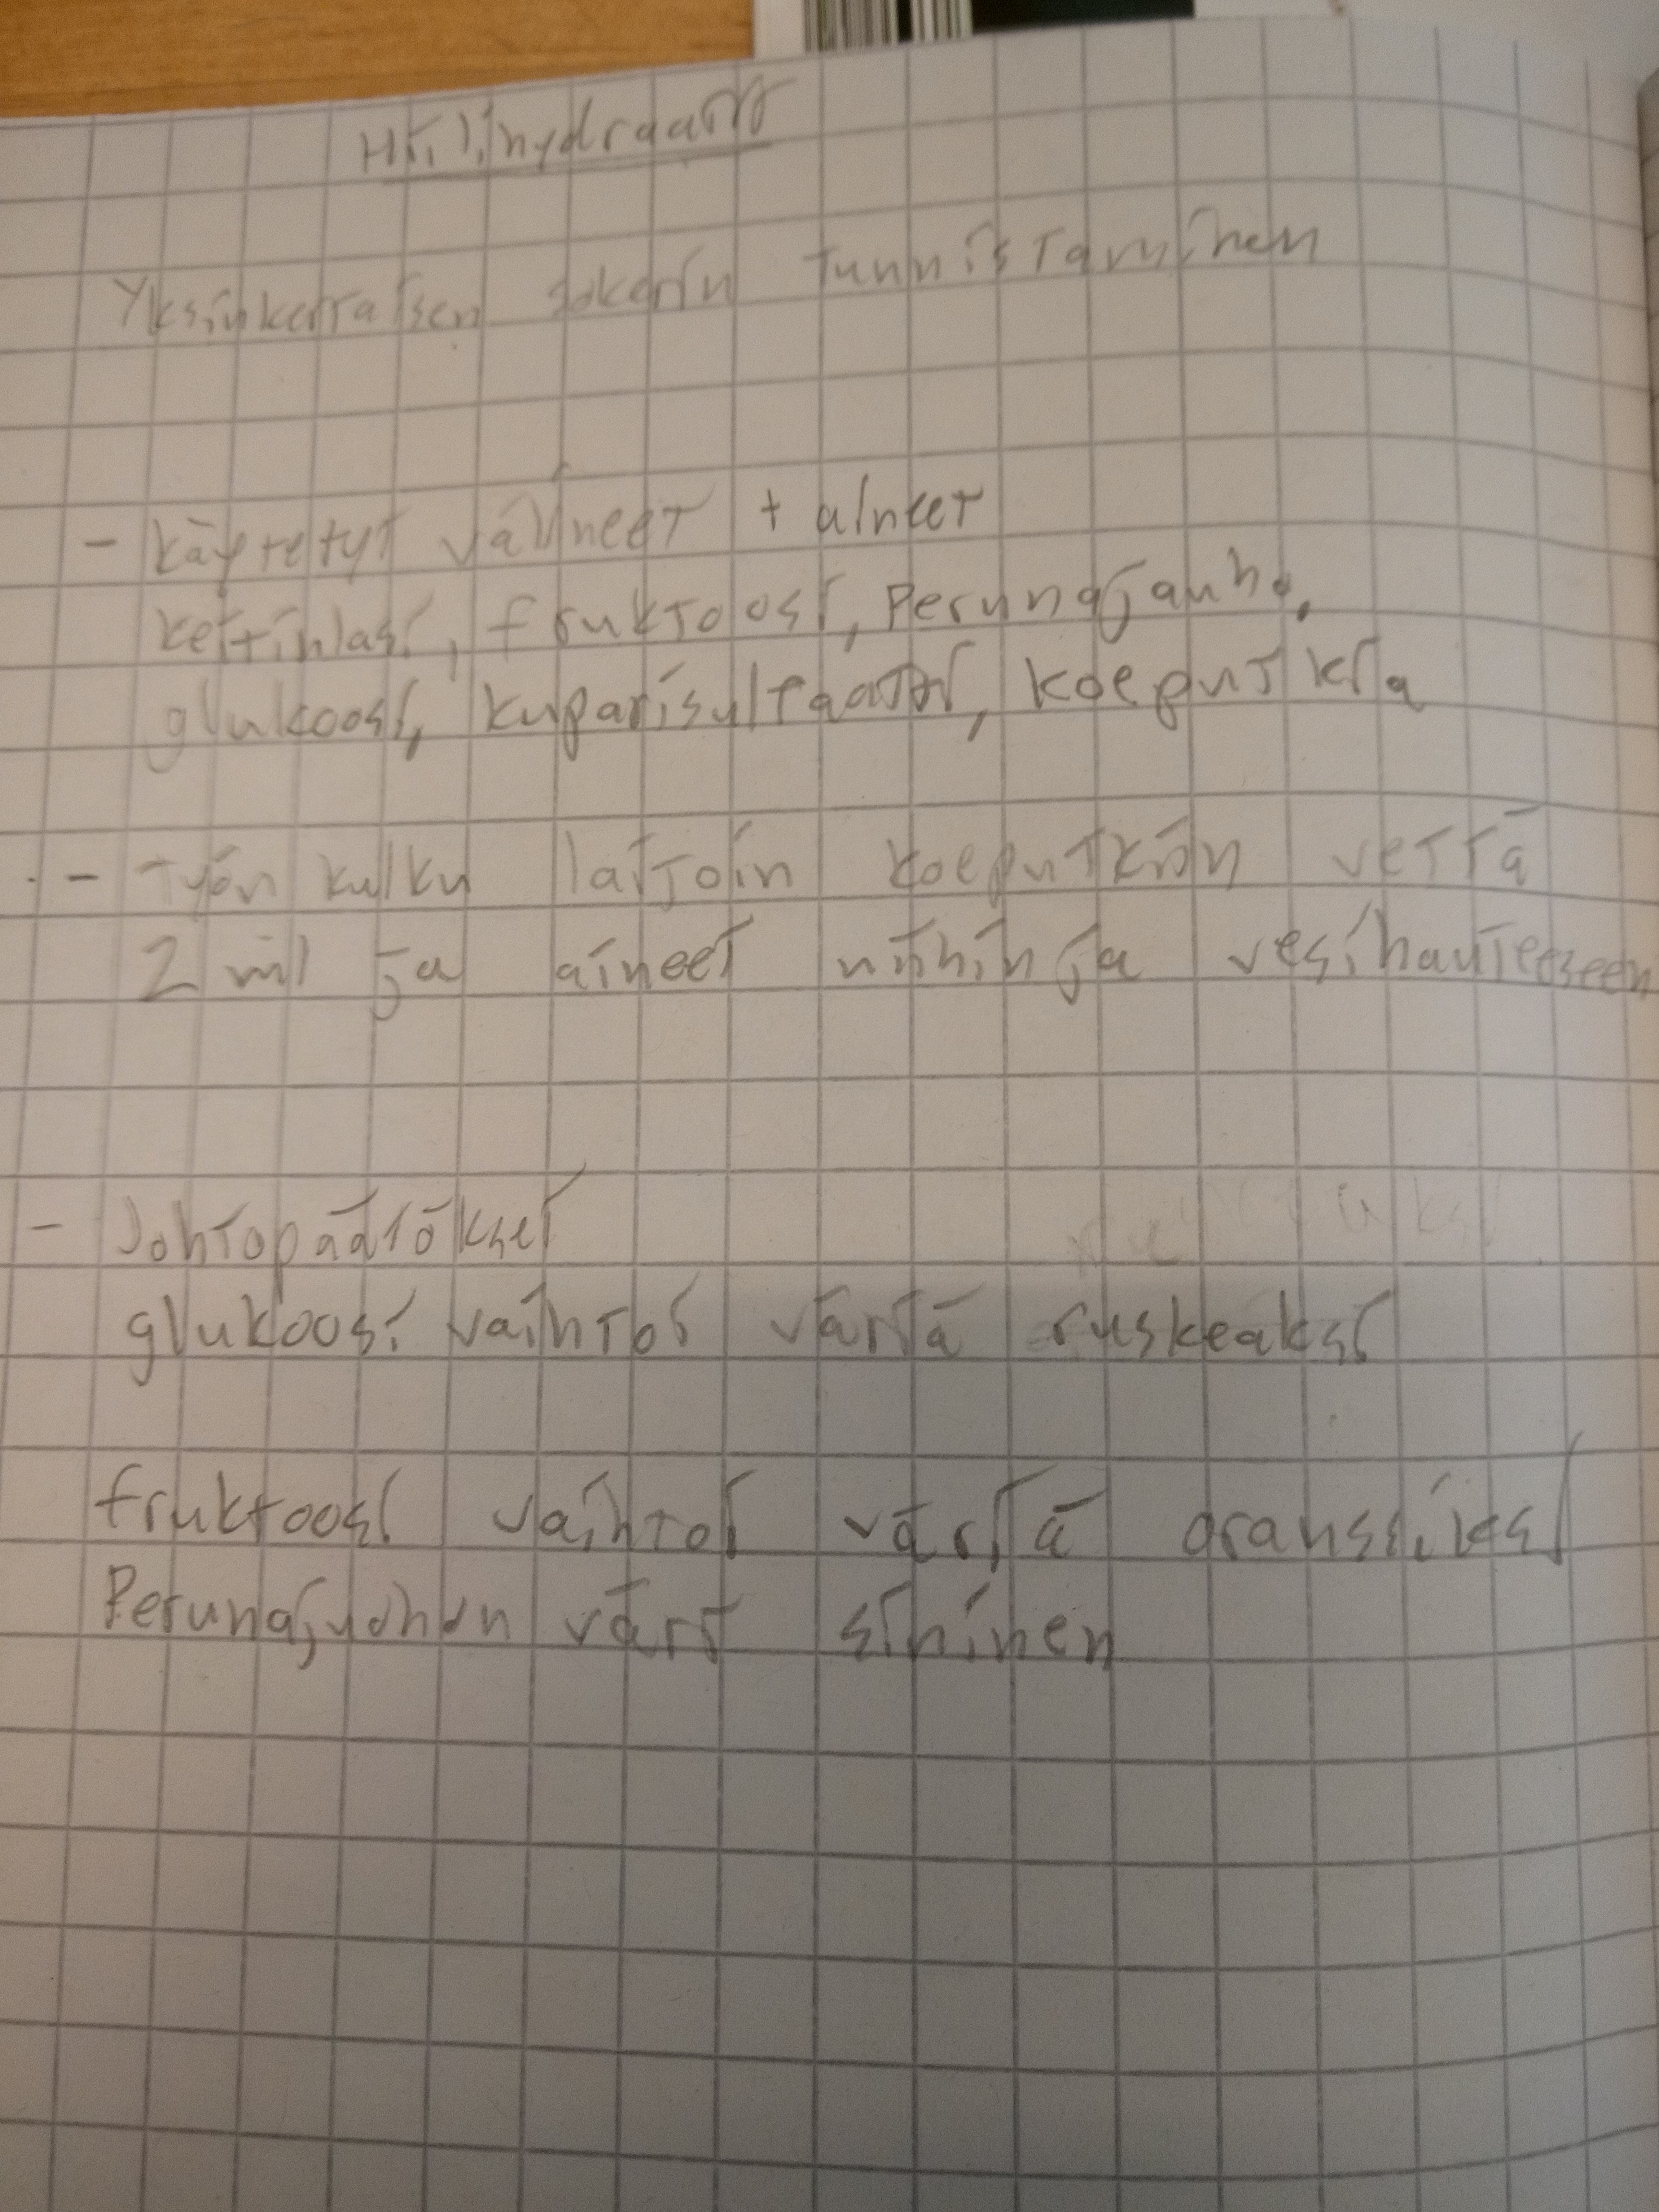 Hiilihydraatit
Yksinkertaisen sokerin tunnistaminen
- käytetyt välineet + aineet
keitinlasi, fruktoosi, Perunajauho,
glukoosi, kuparisulfaatti, koeputkia
- Työn kulku laitoin koeputkiin vettä
2 ml ja aineet niihin ja vesihauteeseen
- Johtopäätökset
glukoosi vaihtoi väriä ruskeaksi
fruktoosi vaihtoi väriä oranssiksi
Perunajauhon väri sininen